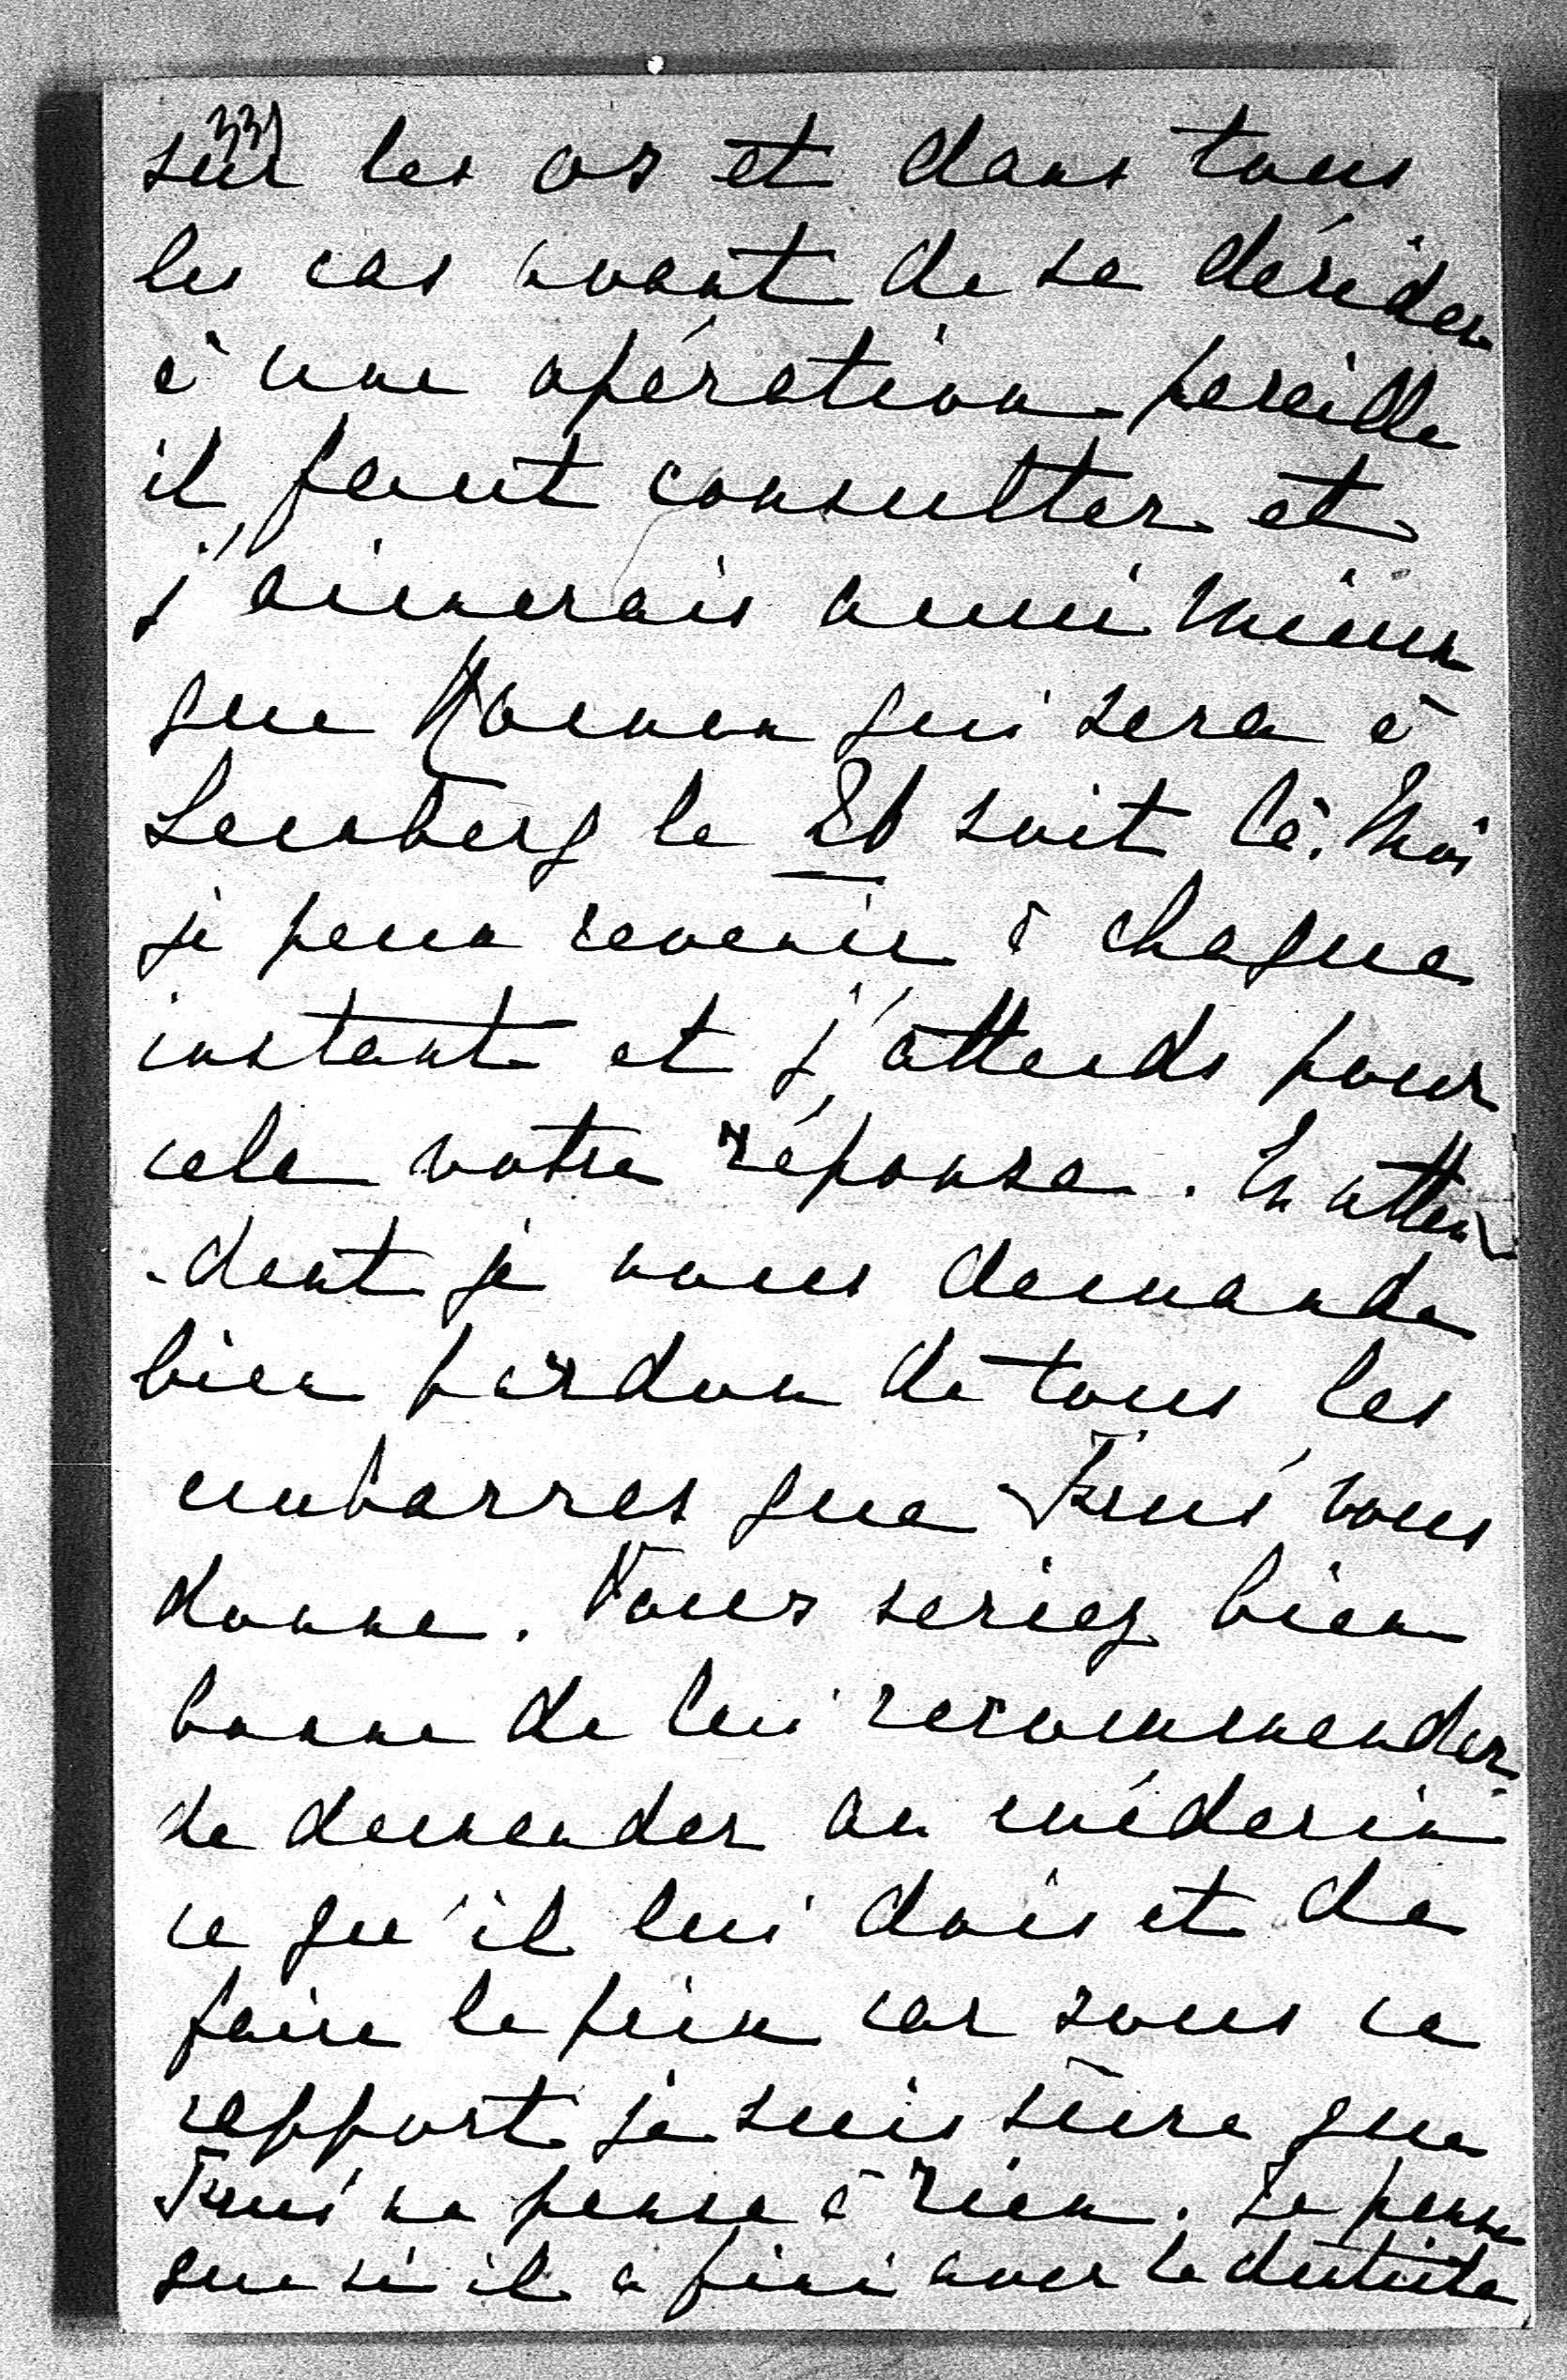 331
sur les os et dans tous
les cas avant de se décider
à une opération pareille
il faut consulter et
j'aimerais aussi mieux
que qui sera à
Lemberg le 26 soit là. Moi
je peux revenir à chaque
instant et j'attends pour
cela votre réponse. En atten
-dant je vous demande
bien pardon de tous les
embarras que vous
donne. Vous seriez bien
bonne de lui recommender
de demander au médecin
ce qu'il lui dois et de
faire le prix car sous ce
rapport je suis sûre que
ne pense à rien. Je pense
que si il a fini avec le dentiste